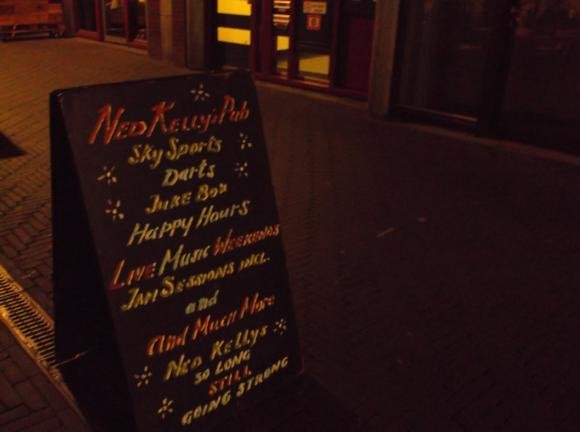 Ned Kelly's Pub
Sky Sports
Darts
Juke Box
Happy Hours
Live Music Weekends
Jam Sessions incl.
and
And Much More
Ned Kellys
So Long
Still
Going Strong